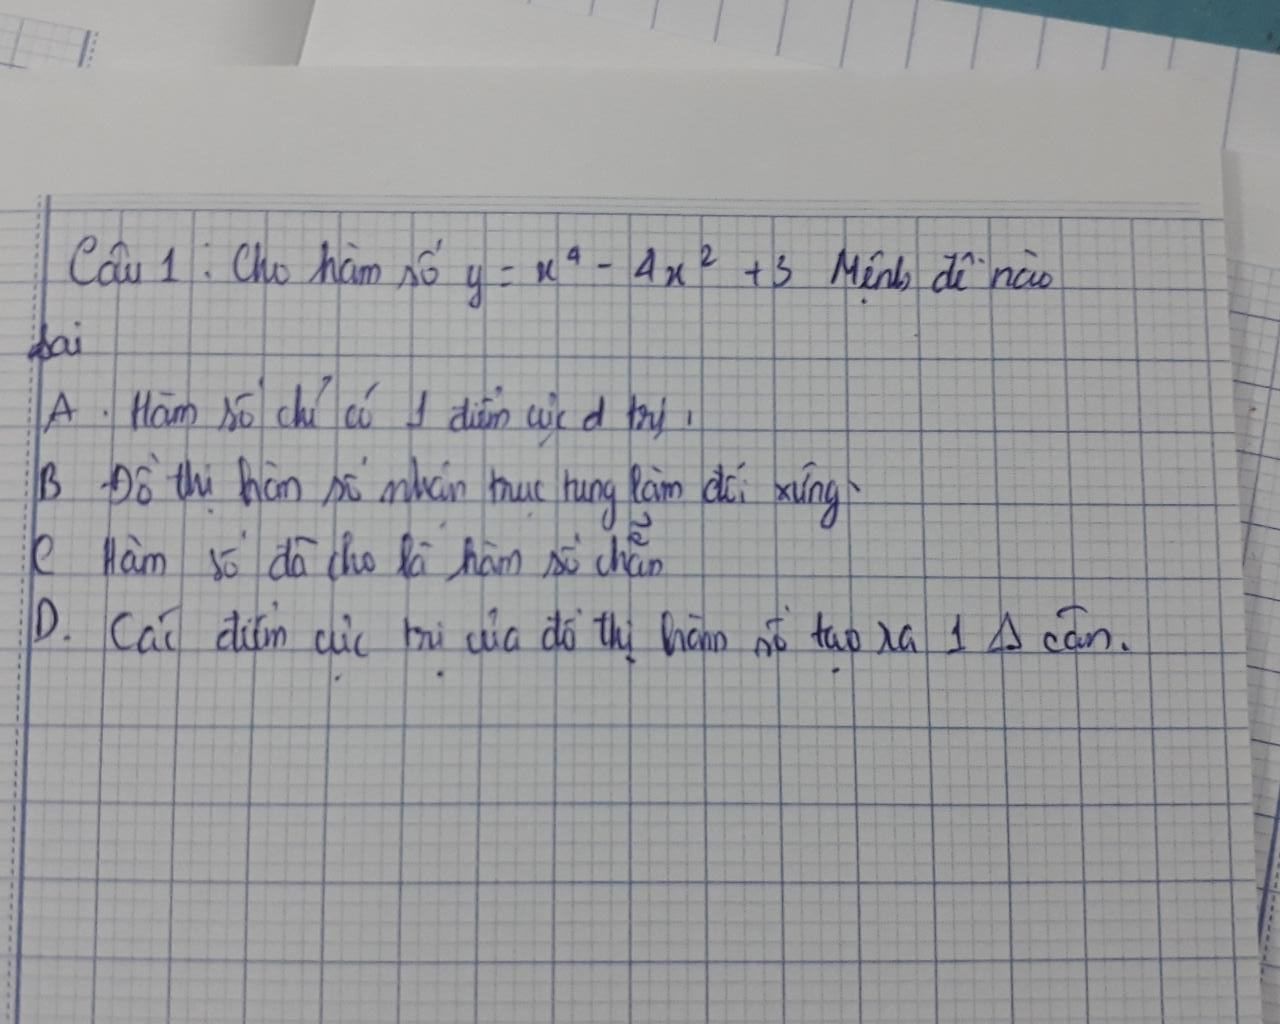 Câu 1 : Cho hàm số y = x⁴ - 4x² + 3 Mệnh đề nào
sai
A . Hàm số chỉ có 1 điểm cực d trị .
B Đồ thị hàm số nhận trục tung làm đối xứng
C Hàm số đã cho là hàm số chẵn
D. Các điểm cực trị của đồ thị hàm số tạo ra 1 Δ cân.